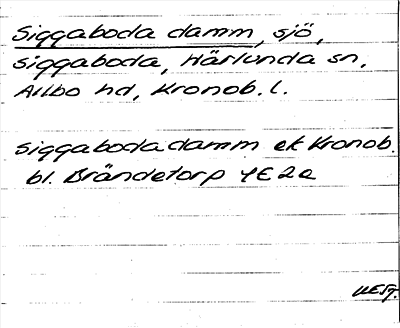 Siggaboda damm, sjö,
Siggaboda, Härlunda sn.
Allbo hd, Kronob. l.
Siggaboda damm ek Kronob.
bl. Brändetorp 4E 2a